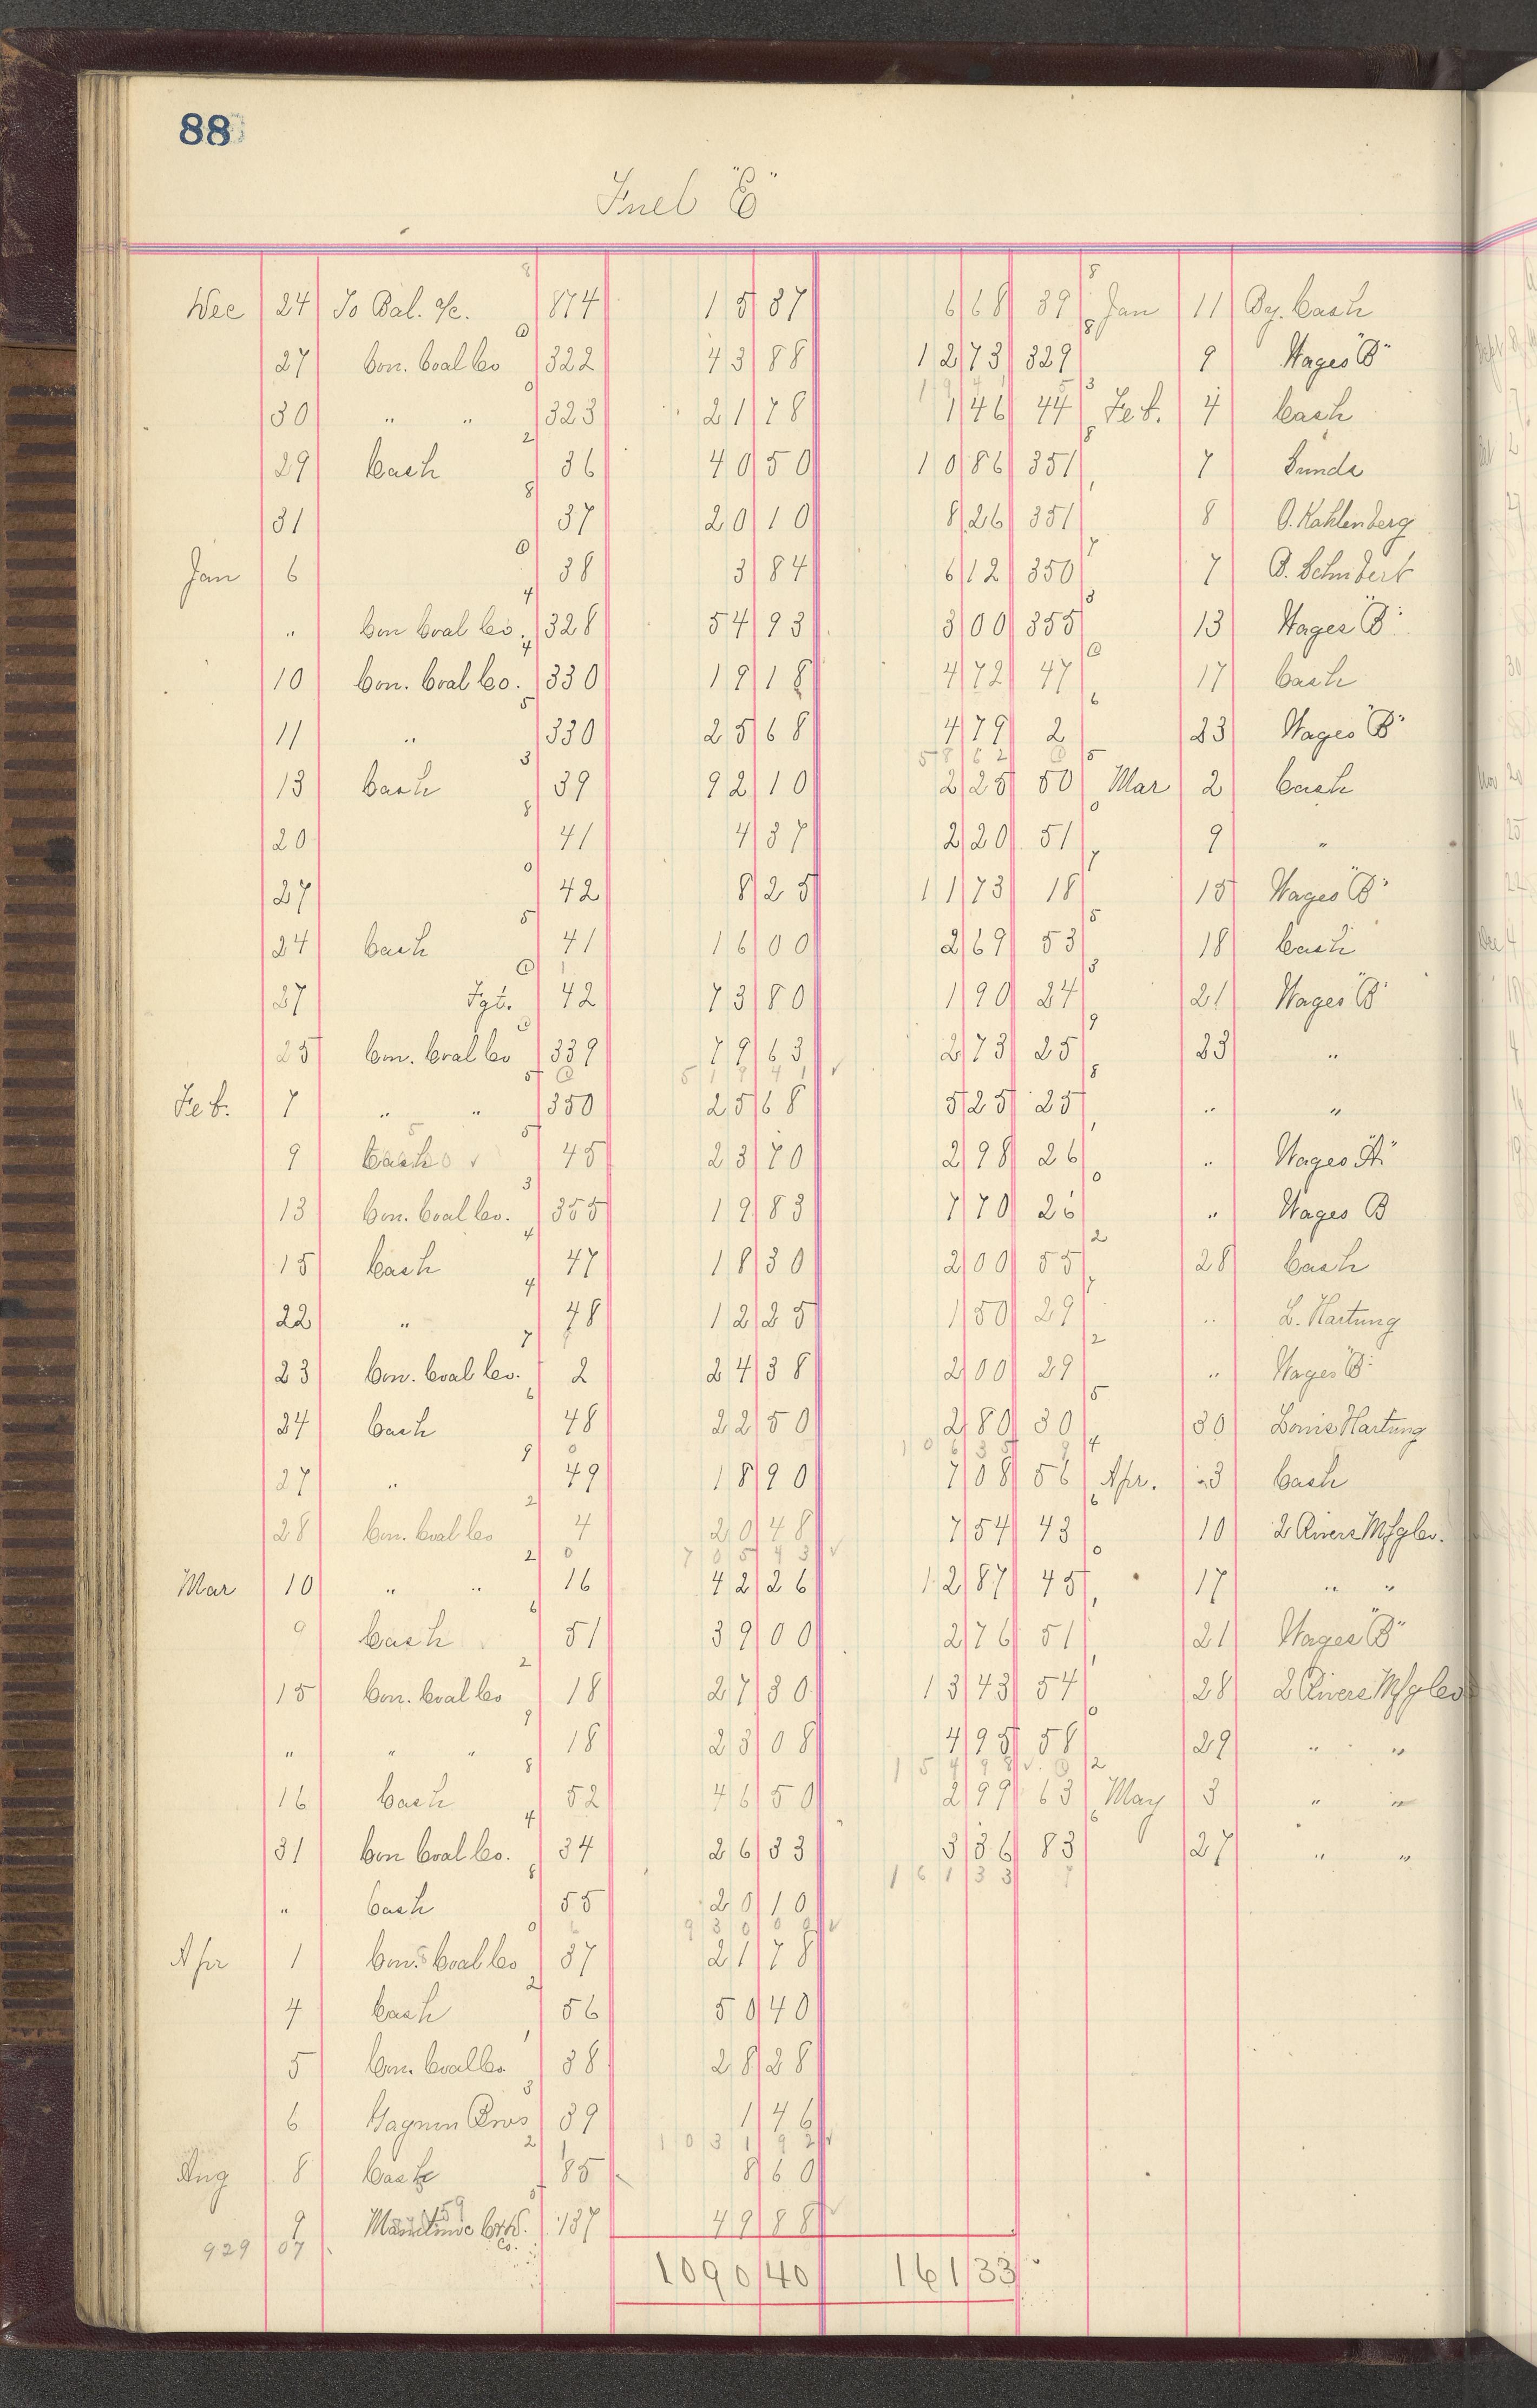 88
Fuel "E"
Dec 24 To Bal. a/c. 874 15 37 6 68 39 Jan 11 By. Cash
27 Con. Coal Co 322 43 88 12 73 329 9 Wages "B"
30 " " 323 21 78 1 46 44 Feb. 4 Cash
29 Cash 36 40 50 10 86 351 7 Sunds
31 37 20 10 8 26 351 8 O. Kahlenberg
Jan 6 38 3 84 6 12 350 7 B. Schubert
" Con Coal Co. 328 54 93 3 00 355 13 Wages "B"
10 Con. Coal Co. 330 19 18 4 72 47 17 Cash
11 " 330 25 68 4 79 2 23 Wages "B"
58 62
13 Cash 39 92 10 2 25 50 Mar 2 Cash
20 41 4 37 2 20 51 9 "
27 42 8 25 11 73 18 15 Wages "B"
24 Cash 41 16 00 2 69 53 18 Cash
27 Fgt. 42 73 80 1 90 24 21 Wages "B"
25 Con. Coal Co 339 79 63 2 73 25 23 "
519 41
Feb. 7 " " 350 25 68 5 25 25 " "
9 Cash 45 23 70 2 98 26 " Wages "A"
13 Con. Coal Co. 355 19 83 7 70 26 " Wages B
15 Cash 47 18 30 2 00 55 28 Cash
22 " 48 12 25 1 50 29 " L. Hartung
23 Con. Coal Co. 2 24 38 2 00 29 " Wages "B"
24 Cash 48 22 50 2 80 30 30 Louis Hartung
106 35
27 " 49 18 90 7 08 56 Apr. 3 Cash
28 Con. Coal Co 4 20 48 7 54 43 10 2 Rivers Mfg Co.
705 43
Mar 10 " " 16 42 26 12 87 45 17 " "
9 Cash 51 39 00 2 76 51 21 Wages "B"
15 Con. Coal Co 18 27 30 13 43 54 28 2 Rivers Mfg Co
" " " 18 23 08 4 95 58 29 " "
154 98
16 Cash 52 46 50 2 99 63 May 3 " "
31 Con Coal Co. 34 26 33 3 36 83 27 " "
161 33
" Cash 55 20 10
930 00
Apr 1 Con. Coal Co 37 21 78
4 Cash 56 50 40
5 Con. Coal Co 38 28 28
6 Gagnon Bros 39 1 46
1031 92
Aug 8 Cash 85 8 60
9 137 49 88
929 07
1090 40 161 33